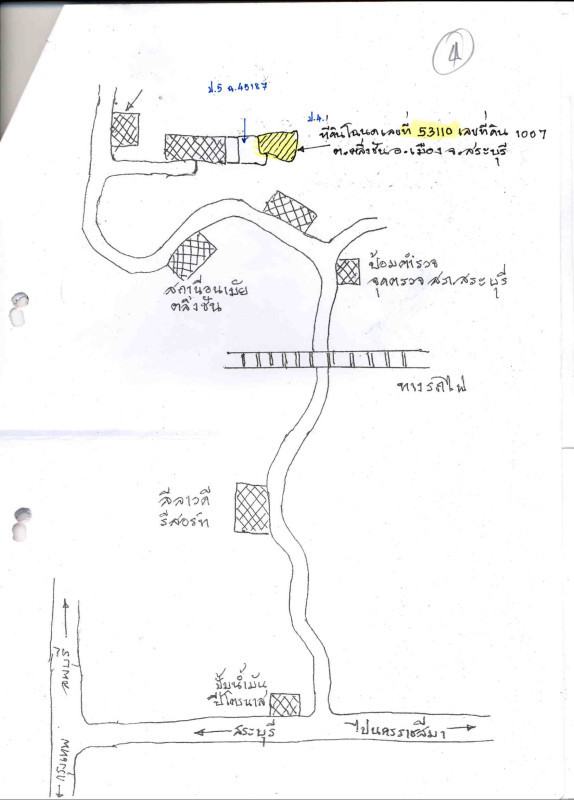 4
ป.5 ฉ.45187
ป.4.1
ที่ดินโฉนดเลขที่ 53110 เลขที่ดิน 1007
ต.ตลิ่งชัน อ.เมือง จ.สระบุรี
ป้อมตำรวจ
จุดตรวจ สภ.สระบุรี
สถานีอนามัย
ตลิ่งชัน
ทางรถไฟ
ลีลาวดี
รีสอร์ท
ปั๊มน้ำมัน
ปิโตรนาส
สระบุรี
ไปนครราชสีมา
ลพบุรี
กรุงเทพ